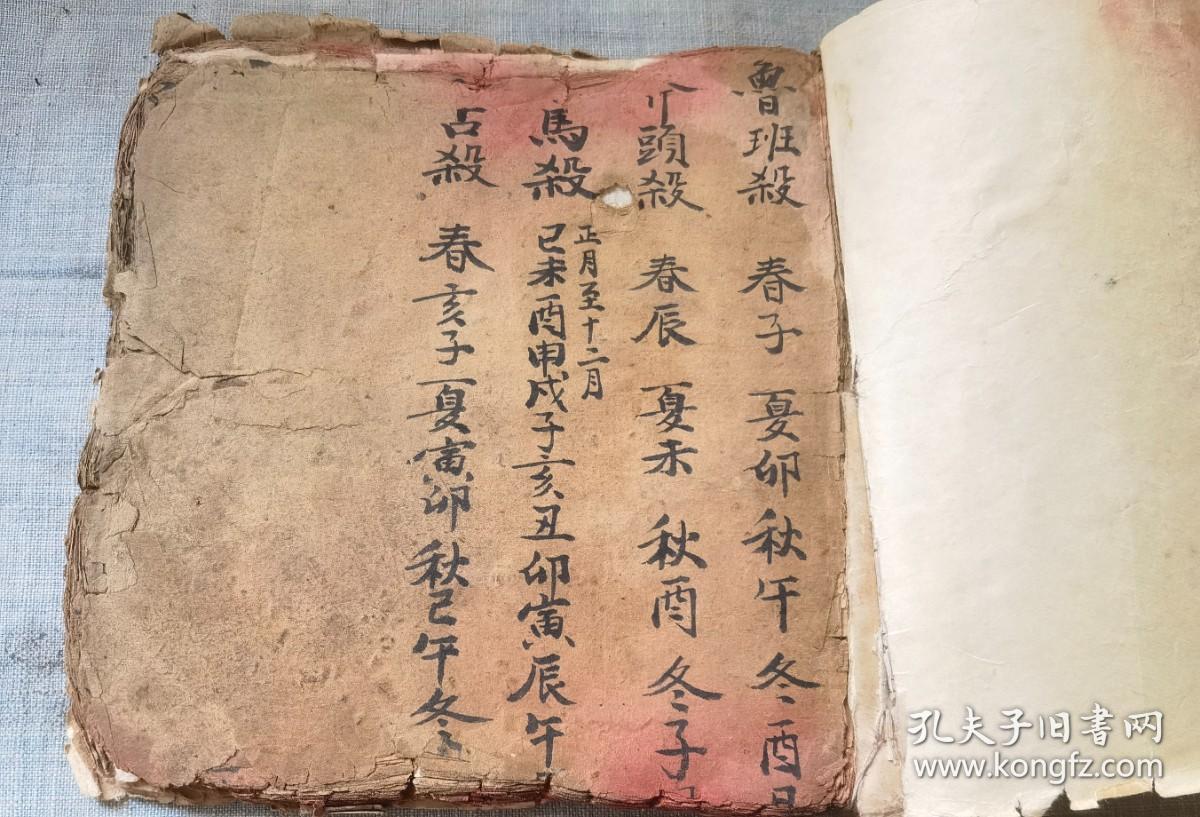 魯班殺 春子 夏卯 秋午 冬酉日
頭殺 春辰 夏未 秋酉 冬子
馬殺 正月至十二月 巳未酉申戌子亥丑卯寅辰午
占殺 春亥子 夏寅卯 秋巳午 冬
孔夫子旧书网
www.kongfz.com